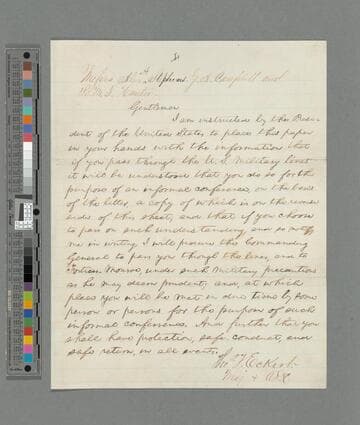 Messrs Alex. H. Stephens, J. A. Campbell and
R. M. T. Hunter
Gentlemen
I am instructed by the Presi-
dent of the United States to place this paper
in your hands with the information that
if you pass through the U. S. Military lines
it will be understood that you do so for the
purpose of an informal conference, on the basis
of the letter, a copy of which is on the reverse
side of this sheet, and that if you choose
to pass on such understanding, and so notify
me in writing, I will procure the Commanding
General to pass you through the lines, and to
Fortress Monroe, under such Military precautions
as he may deem prudent; and, at which
place you will be met in due time by some
person or persons for the purpose of such
informal conference. And further that you
shall have protection, safe conduct, and
safe return, in all events.
Tho. T. Eckert
Maj &